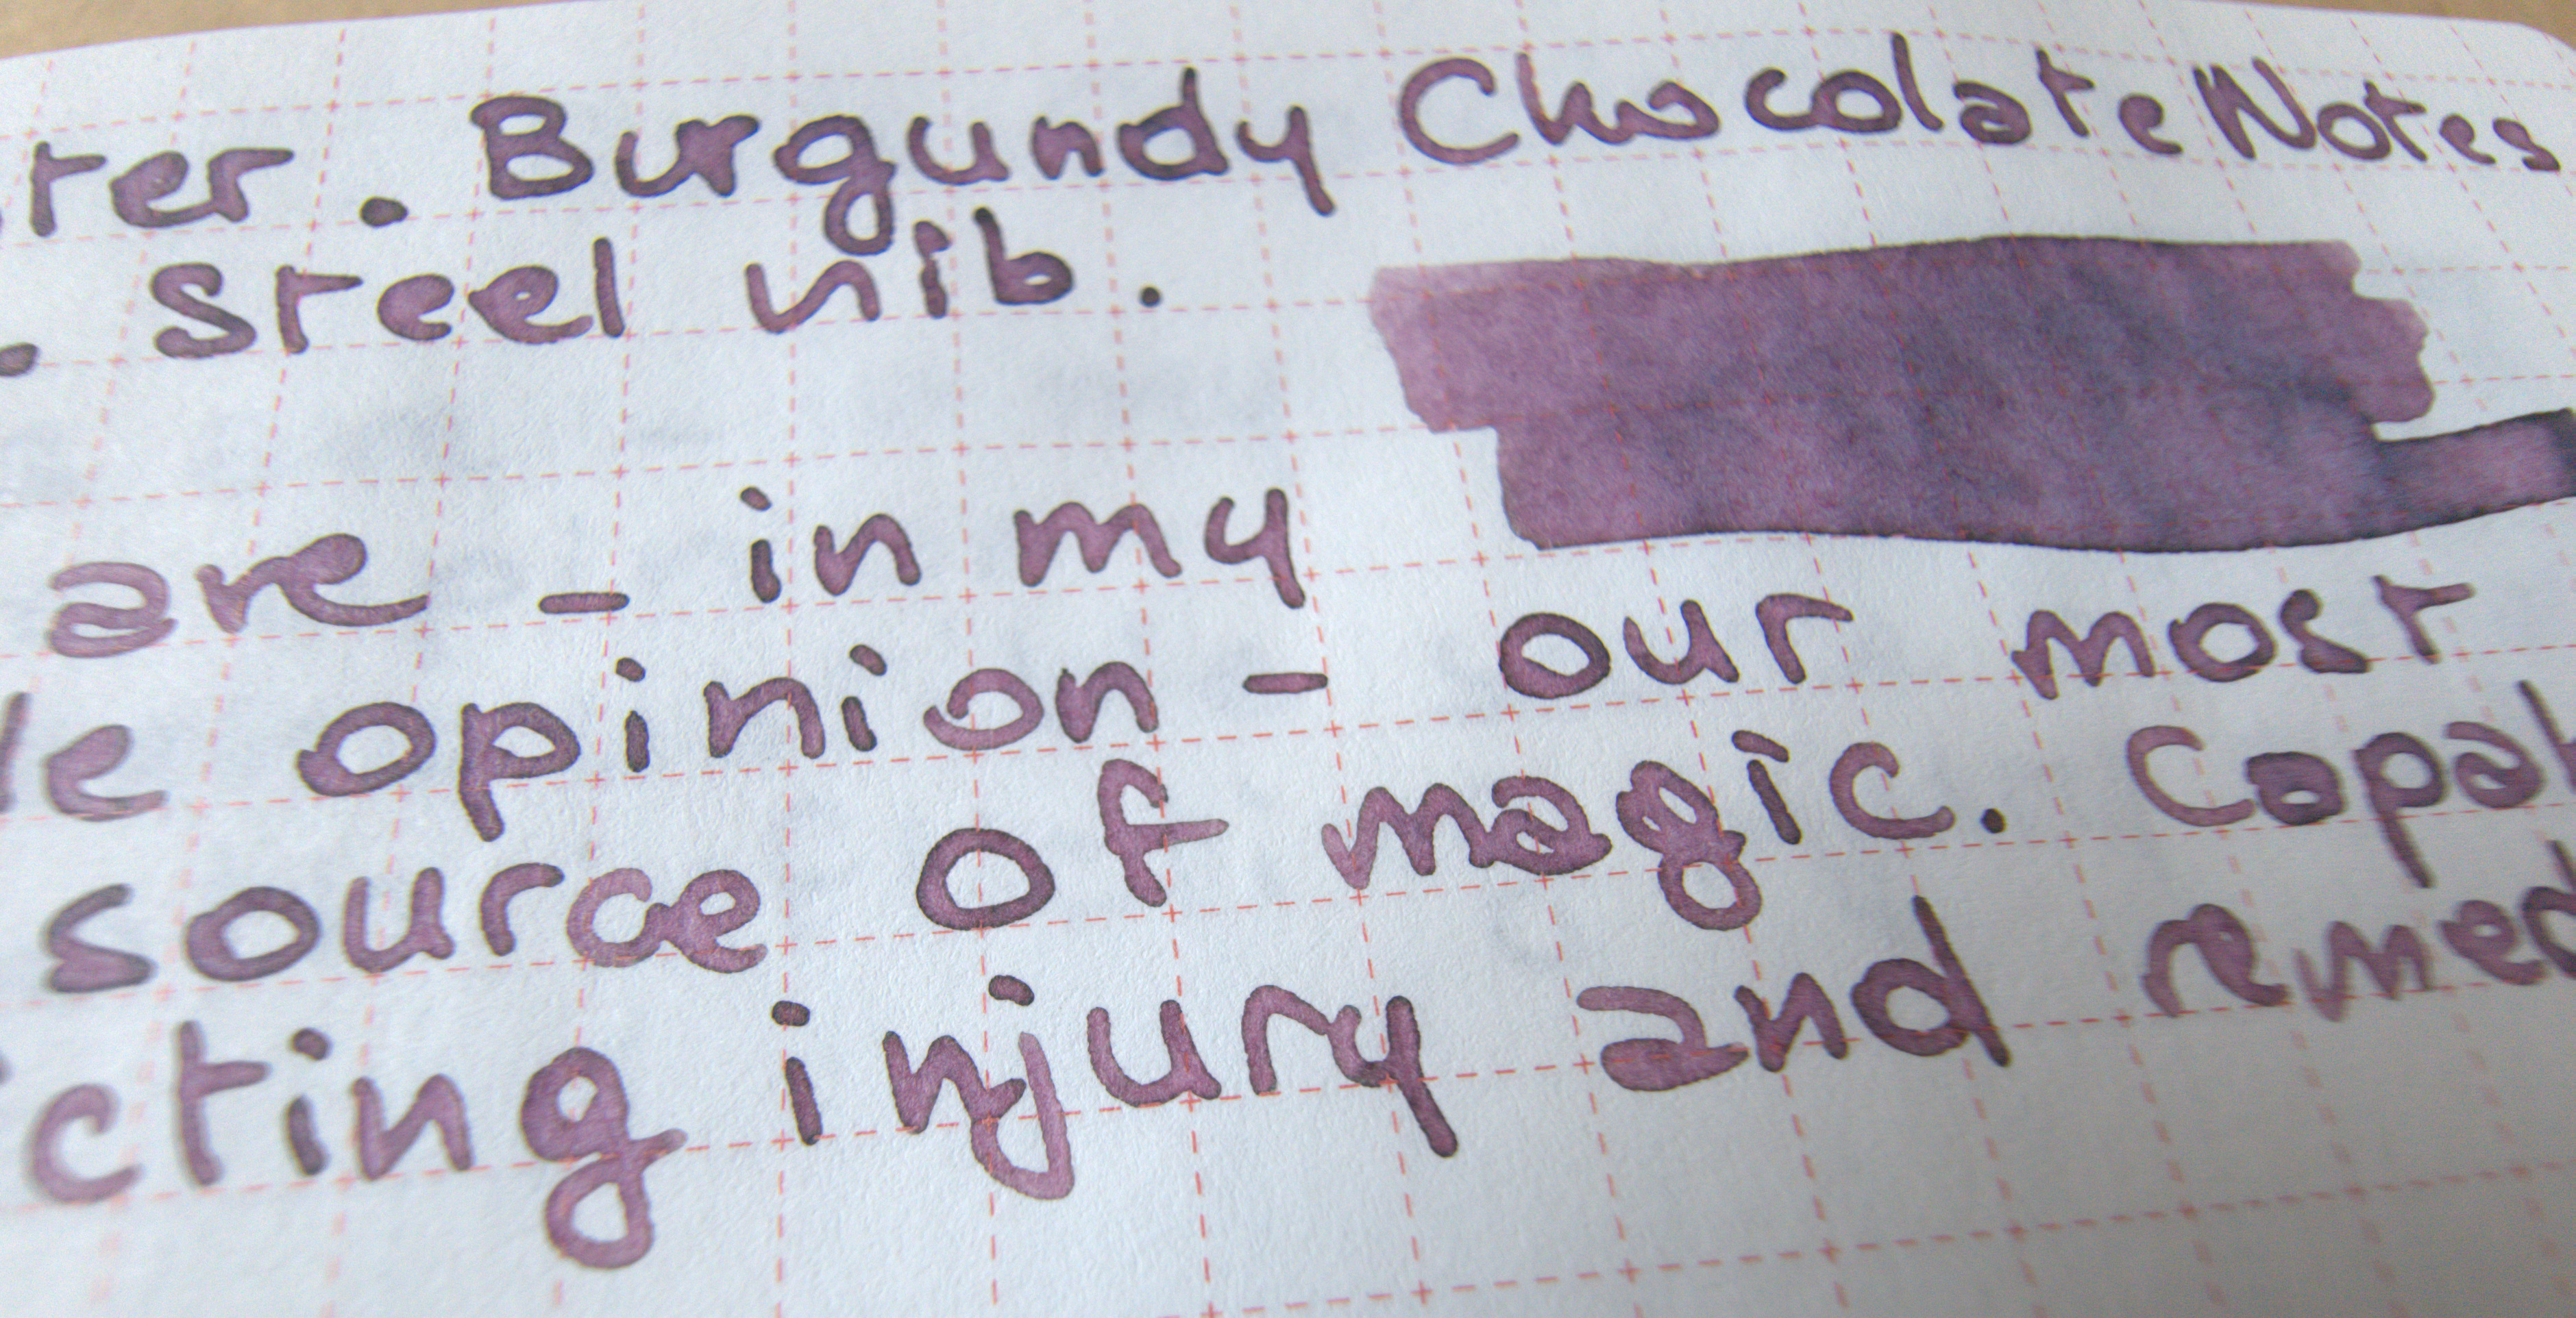 ter. Burgundy Chocolate Notes
. Steel nib.
are - in my
le opinion - our most
source of magic. Capab
cting injury and remed